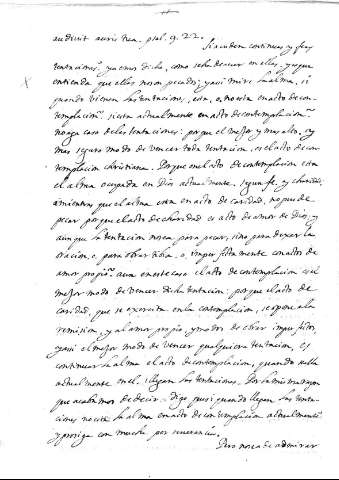 audivit auris tua. psal. 9. 22.
Si acuden continuas y feas
tentaciones, ya emos dicho, como se ha de aver en ellas, y
entienda que ellas no son pecados; y assi mire la alma, si
quando vienen las tentaciones, esta, o no esta en acto de con-
templacion. si esta actualmente en acto de contemplacion
no aga caso de las tentaciones: porque el mejor, y mas alto, y
mas seguro modo de vencer toda tentacion, es el acto de con-
templacion christiana. Porque en el acto de contemplacion esta
el alma ocupada en Dios actualmente, segun fe, y charidad,
mientras que el alma esta en acto de caridad, no puede
pecar porque el acto de charidad es acto de amor de Dios, y
aunque la tentacion no sea para pecar, sino para dexar la
oracion, o para obrar tibia, o imperfetamente con actos de
amor propio, aun en este caso el acto de contemplacion es el
mejor modo de vencer dicha tentacion: porque el acto de
caridad, que se exercita en la contemplacion, se opone a la
remision, y al amor propio, y modos de obrar imperfetos,
y assi el mejor modo de vencer qualquiera tentacion, es
continuar la alma el acto de contemplacion, quando se halla
actualmente en el, y llegan las tentaciones. Por la misma razon
que acabamos de decir. Digo pues: quando llegan las tenta-
ciones no esta la alma en acto de contemplacion actualmente
y prosiga con mucha perseverancia.
Pero no sea de admirar